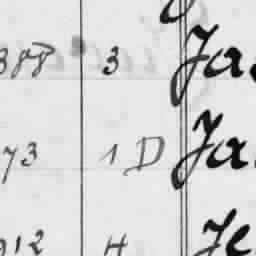 388 3 Ja
73 1 D Ja
912 4 Je